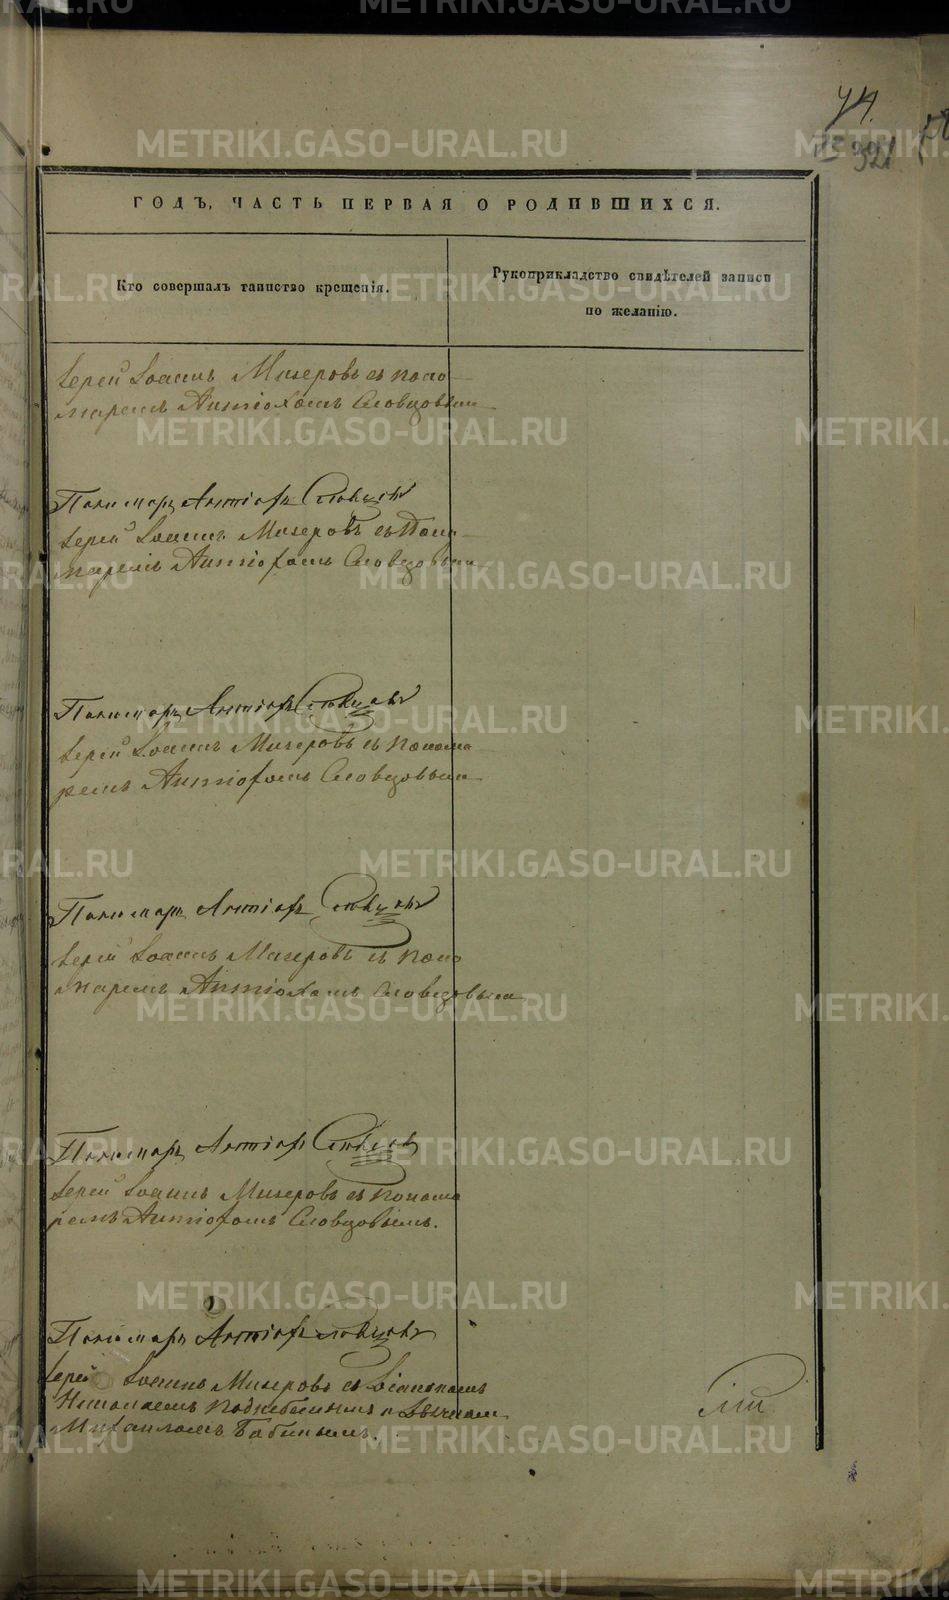 74.
321
ГОДЪ, ЧАСТЬ ПЕРВАЯ О РОДИВШИХСЯ.
Кто совершалъ таинство крещенія.
Рукоприкладство свидѣтелей записи
по желанію.
Іерей Іоаннъ Мизеровъ съ поно
маремъ Антіохомъ Словцовымъ
Пономарь Антіохъ Словцовъ
Іерей Іоаннъ Мизеровъ съ Поно
маремъ Антіохомъ Словцовымъ
Пономарь Антіохъ Словцовъ
Іерей Іоаннъ Мизеровъ съ понома
ремъ Антіохомъ Словцовымъ
Пономарь Антіохъ Словцовъ
Іерей Іоаннъ Мизеровъ съ поно
маремъ Антіохомъ Словцовымъ
Пономарь Антіохъ Словцовъ
Іерей Іоаннъ Мизеровъ съ понома
ремъ Антіохомъ Словцовымъ.
Пономарь Антіохъ Словцовъ
Іерей Іоаннъ Мизеровъ съ Діакономъ
Николаемъ и Дьячкомъ
Михаиломъ Бабинымъ.
METRIKI.GASO-URAL.RU